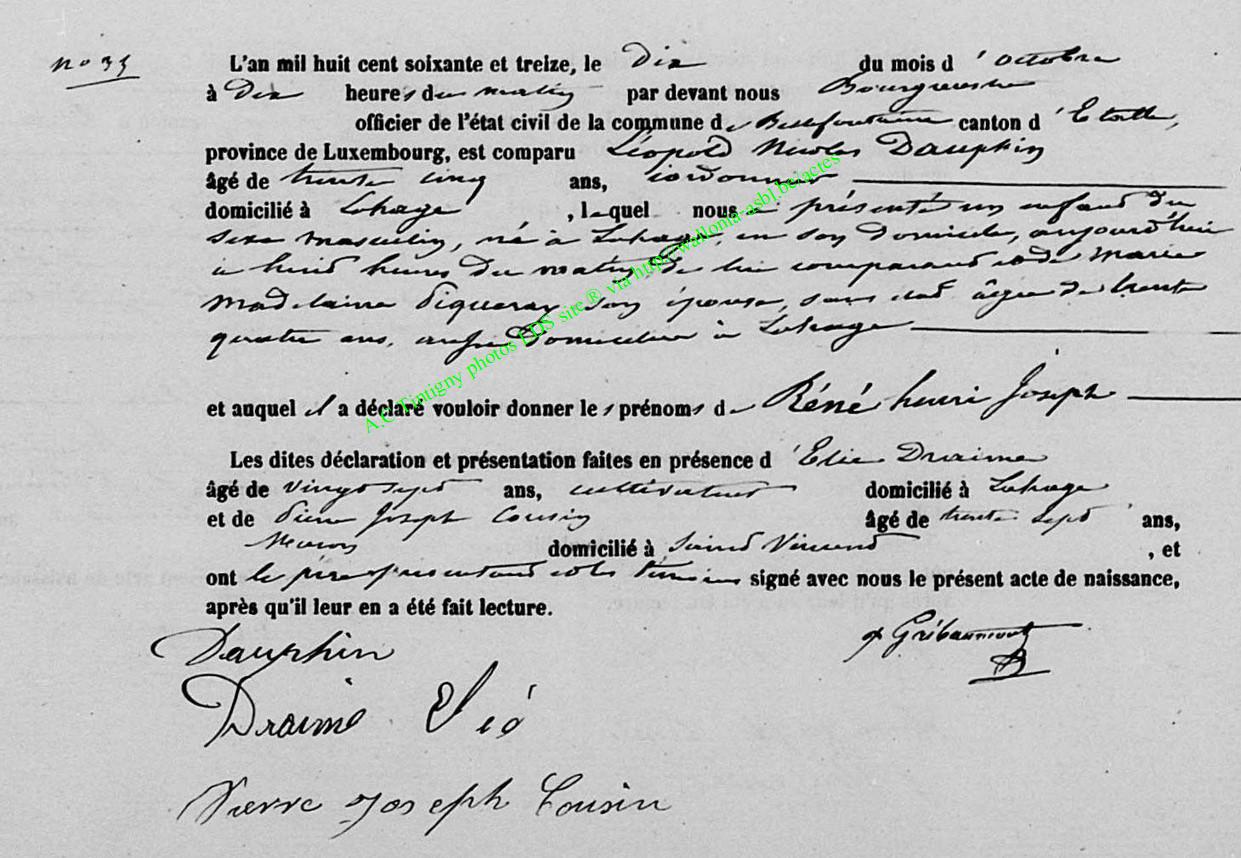 n° 35
L'an mil huit cent soixante et treize, le Dix du mois d'octobre
à Dix heures du matin par devant nous Bourgmestre
officier de l'état civil de la commune de Bellefontaine canton d'Etalle,
province de Luxembourg, est comparu Léopold Nicolas Dauphin
âgé de trente cinq ans, cordonnier
domicilié à Lahage, lequel nous a présenté un enfant du
sexe masculin, né à Lahage, en son domicile, aujourd'hui
à huit heures du matin, de lui comparant et de Marie
Madelaine Piqueray son épouse, sans état âgée de trente
quatre ans, aussi domiciliée à Lahage
et auquel il a déclaré vouloir donner les prénoms de Réné henri Joseph
Les dites déclaration et présentation faites en présence d'Elie Draime
âgé de vingt sept ans, cultivateur domicilié à Lahage
et de Pierre Joseph Cousin âgé de trente sept ans,
domicilié à Saint Vincent, et
ont le père présentant et les témoins signé avec nous le présent acte de naissance,
après qu'il leur en a été fait lecture.
Dauphin
Gribaumont
Draime Elié
Pierre Joseph Cousin
A.C Tintigny photos LDS site ® via http://wallonia-asbl.be/actes